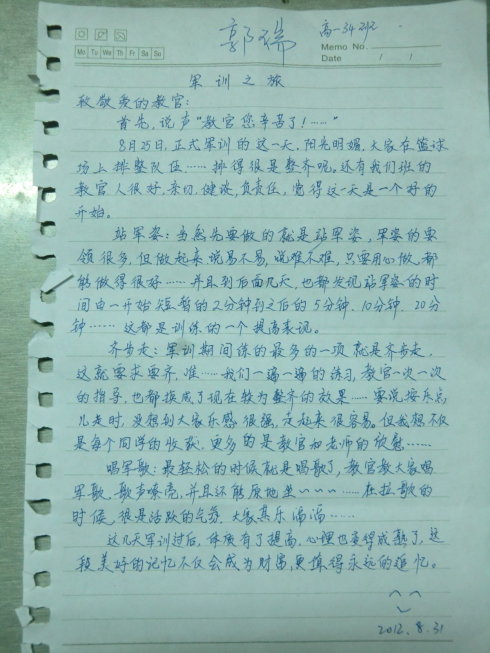 郭瑞 高一34班
Mo Tu We Th Fr Sa Su
Memo No.
Date / /
军训之旅
致敬爱的教官:
首先,说声“教官您辛苦了!……”
8月25日,正式军训的这一天,阳光明媚,大家在篮球
场上排整队伍……排得很是整齐呢。还有我们班的
教官人很好,亲切,健谈,负责任,觉得这一天是一个好的
开始。
站军姿:当然先要做的就是站军姿,军姿的要
领很多,但做起来说易不易,说难不难,只要用心做,都
能做得很好……并且到后面几天,也都发现站军姿的时
间由一开始短暂的2分钟到之后的5分钟、10分钟、20分
钟……这都是训练的一个提高表现。
齐步走:军训期间练的最多的一项就是齐步走,
这就要求要齐,准……我们一遍一遍的练习,教官一次一次
的指导,也都换成了现在较为整齐的效果……要说按乐点
儿走时,没想到大家乐感很强,走起来很容易。但我想不仅
是每个同学的收获,更多的是教官和老师的欣慰……
唱军歌:最轻松的时候就是唱歌了,教官教大家唱
军歌,歌声嘹亮,并且还能原地坐~~~……在拉歌的
时候,很是活跃的气氛,大家其乐滔滔……
这几天军训过后,体质有了提高,心理也变得成熟了,这
段美好的记忆不仅会成为财富,更值得永远的追忆。
2012.8.31